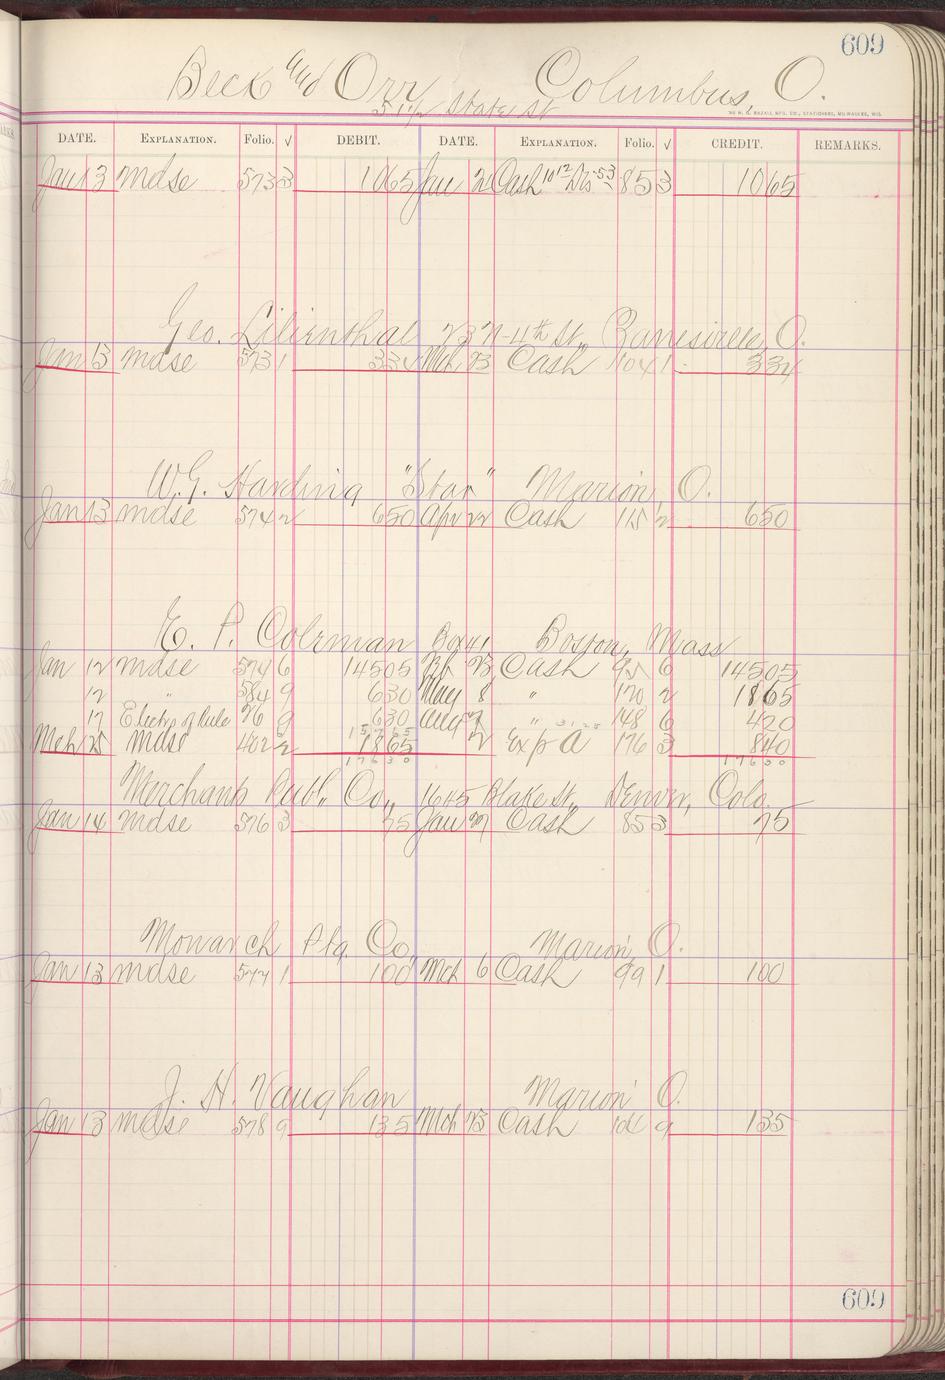 609
Beck and Orr Columbus, O.
51 1/2 State St
THE H. G. RAZALL MFG. CO., STATIONERS, MILWAUKEE, WIS.
DATE. EXPLANATION. Folio. √ DEBIT. DATE. EXPLANATION. Folio. √ CREDIT. REMARKS.
Jan 13 mdse 573 3 1065 Jan 21 Cash 10 12 Dis 53 85 3 1065
Geo. Lilienthal 737 N-11th St., Zanesville, O.
Jan 13 mdse 573 1 334 Mch 23 Cash 104 1 334
W.G. Harding "Star" Marion, O.
Jan 13 mdse 574 2 650 Apr 22 Cash 115 2 650
E. P. Coleman Box 41 Boston, Mass
Jan 12 mdse 574 6 14505 Cash 95 6 14505
12 " 584 9 630 May 8 " 120 2 1865
17 Electro of Rule 76 9 630 Aug 7 " 148 6 420
15765 3125
Mch 25 mdse 402 2 1865 2 Exp A 176 3 840
17630 17630
Merchants Publ. Co., 1645 Blake St., Denver, Colo.
Jan 14 mdse 576 3 75 Jan 27 Cash 85 3 75
Monarch Ptg. Co. Marion, O.
Jan 13 mdse 577 1 100 Mch 6 Cash 99 1 100
J. H. Vaughan Marion O.
Jan 13 mdse 578 9 135 Mch 23 Cash 104 9 135
609